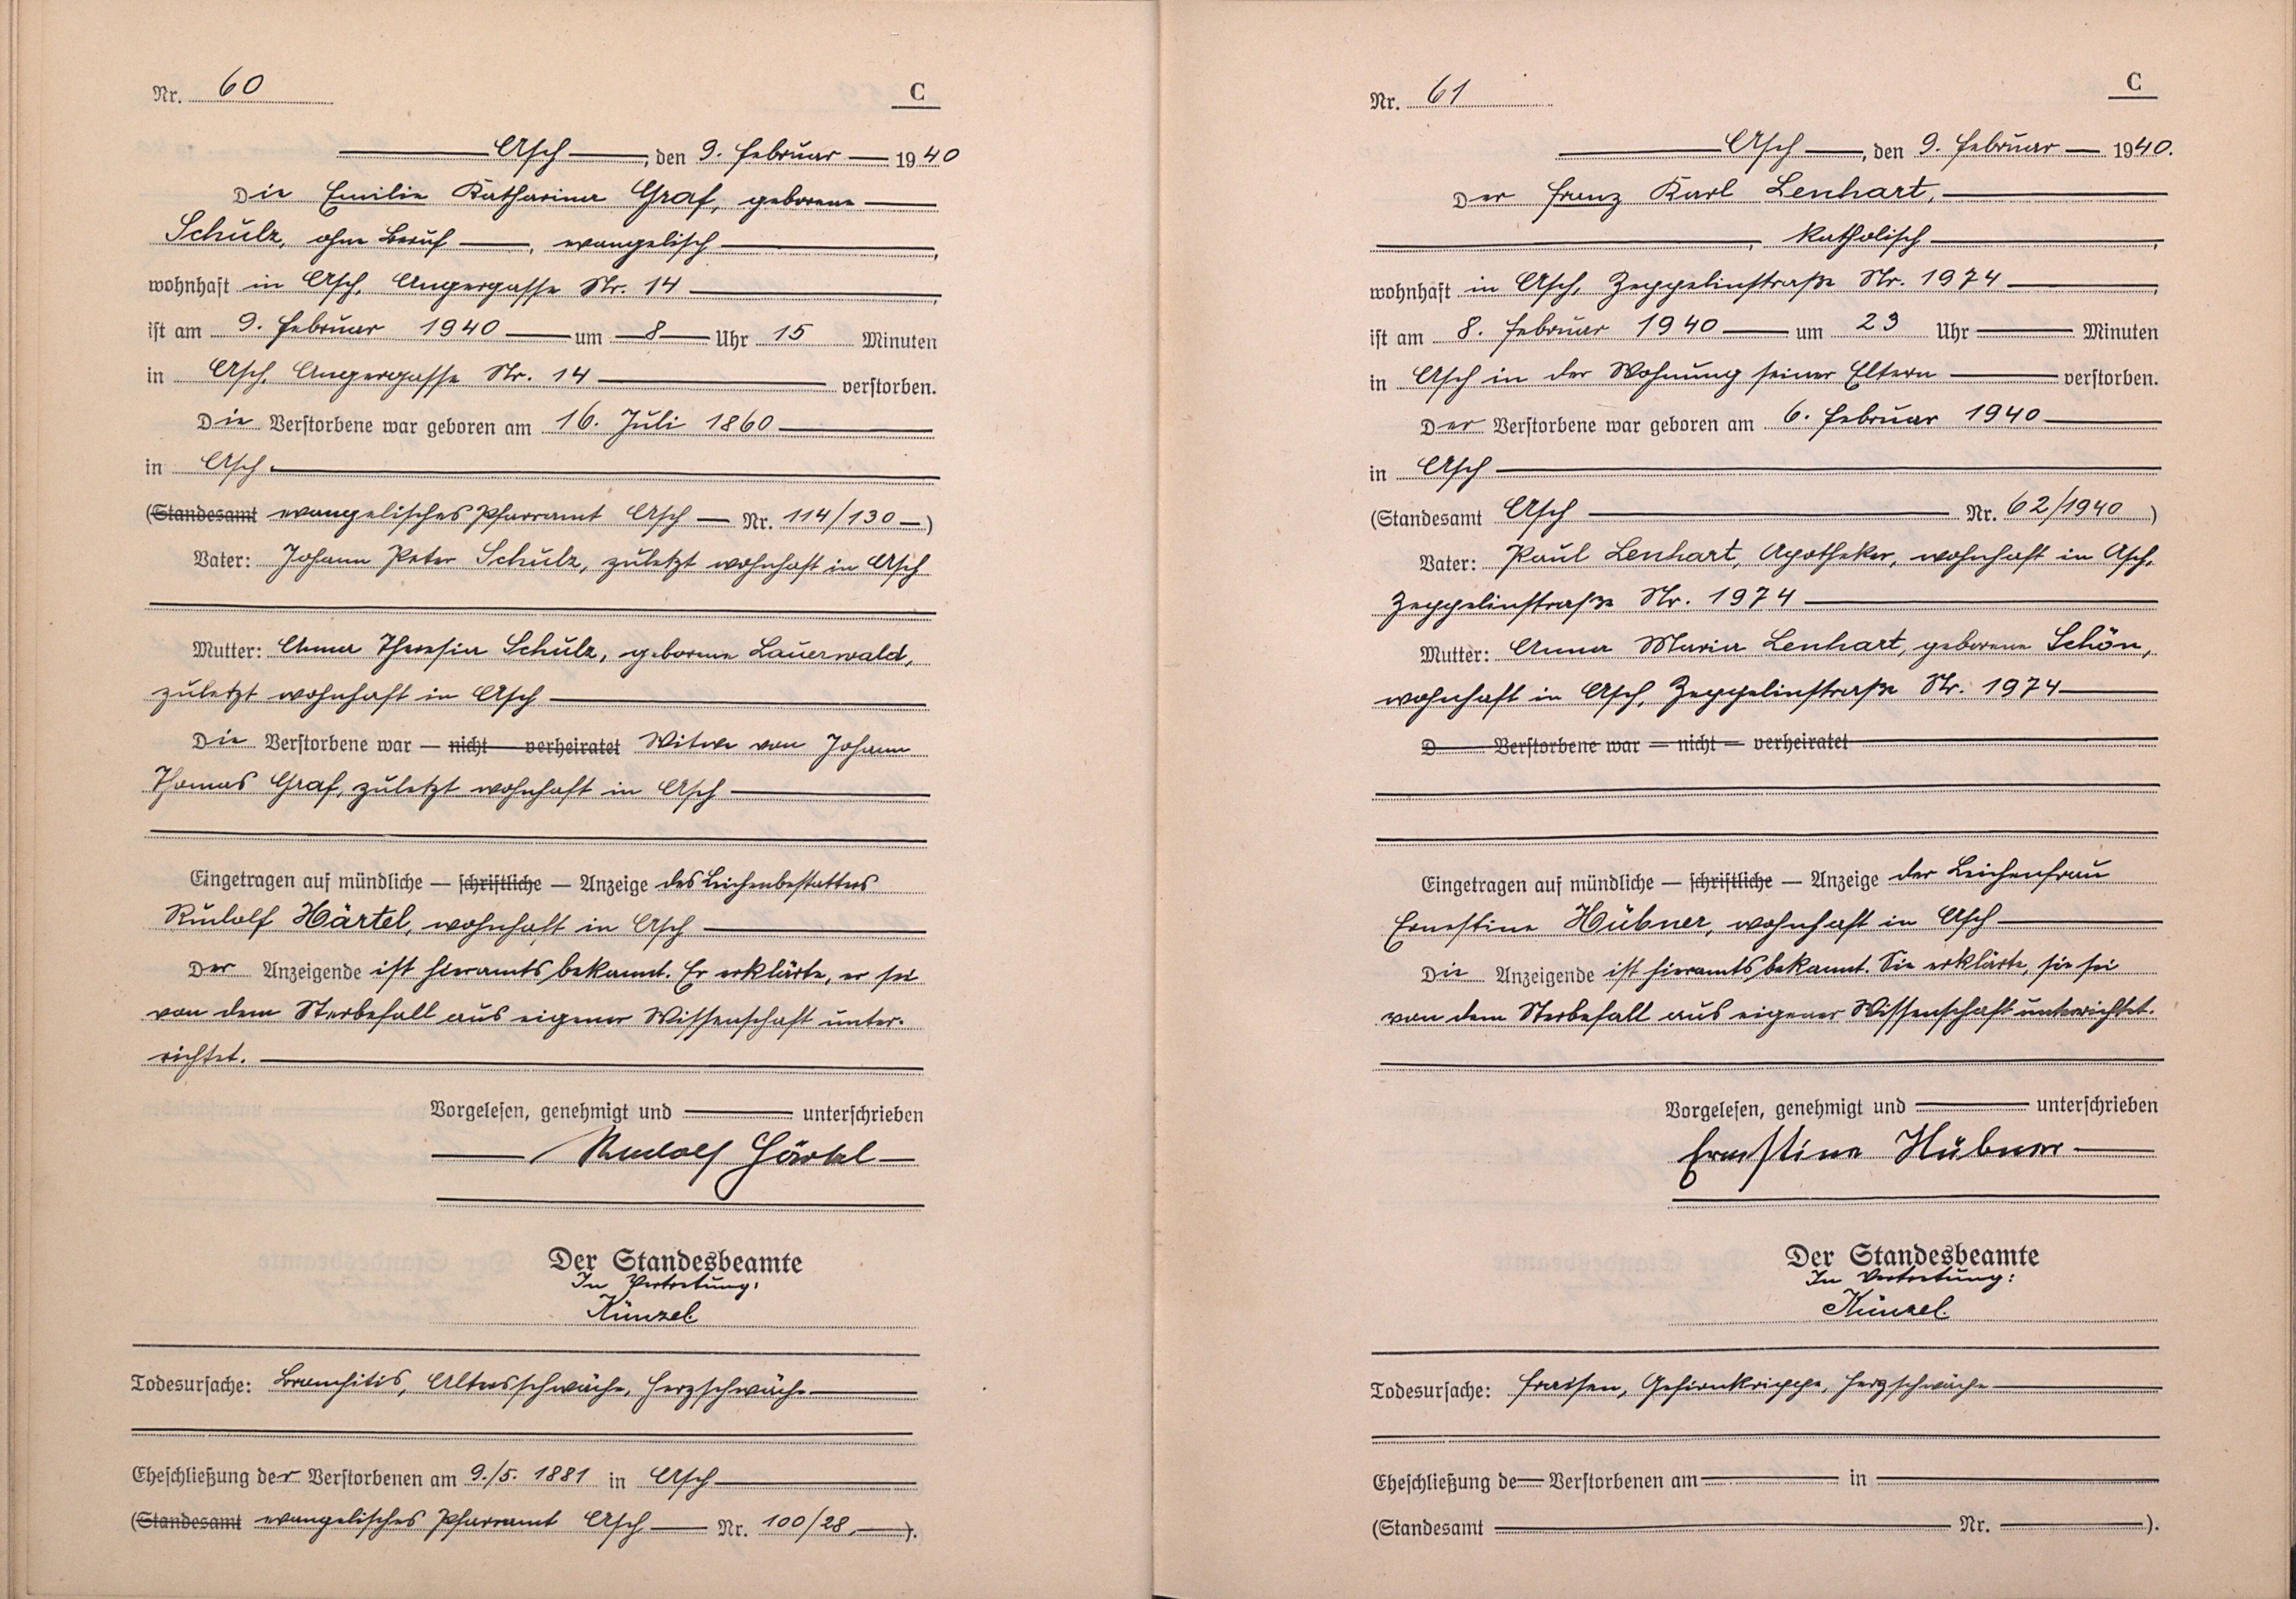 Nr. 60
C
Asch, den 9. Februar 1940
Die Emilie Katharina Graf, geborene
Schulz, ohne Beruf, evangelisch,
wohnhaft in Asch, Angergasse Nr. 14,
ist am 9. Februar 1940 um 8 Uhr 15 Minuten
in Asch, Angergasse Nr. 14 verstorben.
Die Verstorbene war geboren am 16. Juli 1860
in Asch.
(Standesamt evangelisches Pfarramt Asch Nr. 114/130)
Vater: Johann Peter Schulz, zuletzt wohnhaft in Asch
Mutter: Anna Theresia Schulz, geborene Lauerwald,
zuletzt wohnhaft in Asch
Die Verstorbene war — nicht — verheiratet Witwe von Johann
Thomas Graf, zuletzt wohnhaft in Asch
Eingetragen auf mündliche — schriftliche — Anzeige des Leichenbestatters
Rudolf Härtel, wohnhaft in Asch
Der Anzeigende ist hieramts bekannt. Er erklärte, er sei
von dem Sterbefall aus eigener Wissenschaft unter-
richtet.
Vorgelesen, genehmigt und unterschrieben
Rudolf Härtel
Der Standesbeamte
In Vertretung:
Künzel
Todesursache: Bronchitis, Altersschwäche, Herzschwäche
Eheschließung der Verstorbenen am 9./5. 1881 in Asch
(Standesamt evangelisches Pfarramt Asch Nr. 100/28).
Nr. 61
C
Asch, den 9. Februar 1940.
Der Franz Karl Lenhart,
, katholisch,
wohnhaft in Asch, Zeppelinstraße Nr. 1974,
ist am 8. Februar 1940 um 23 Uhr Minuten
in Asch in der Wohnung seiner Eltern verstorben.
Der Verstorbene war geboren am 6. Februar 1940
in Asch
(Standesamt Asch Nr. 62/1940)
Vater: Paul Lenhart, Apotheker, wohnhaft in Asch,
Zeppelinstraße Nr. 1974
Mutter: Anna Maria Lenhart, geborene Schön,
wohnhaft in Asch, Zeppelinstraße Nr. 1974
D Verstorbene war — nicht — verheiratet
Eingetragen auf mündliche — schriftliche — Anzeige der Leichenfrau
Ernestine Hübner, wohnhaft in Asch
Die Anzeigende ist hieramts bekannt. Sie erklärte, sie sei
von dem Sterbefall aus eigener Wissenschaft unterrichtet.
Vorgelesen, genehmigt und unterschrieben
Ernestine Hübner
Der Standesbeamte
In Vertretung:
Künzel.
Todesursache: Fraisen, Gehirnkrippe, Herzschwäche
Eheschließung de Verstorbenen am in
(Standesamt Nr. ).